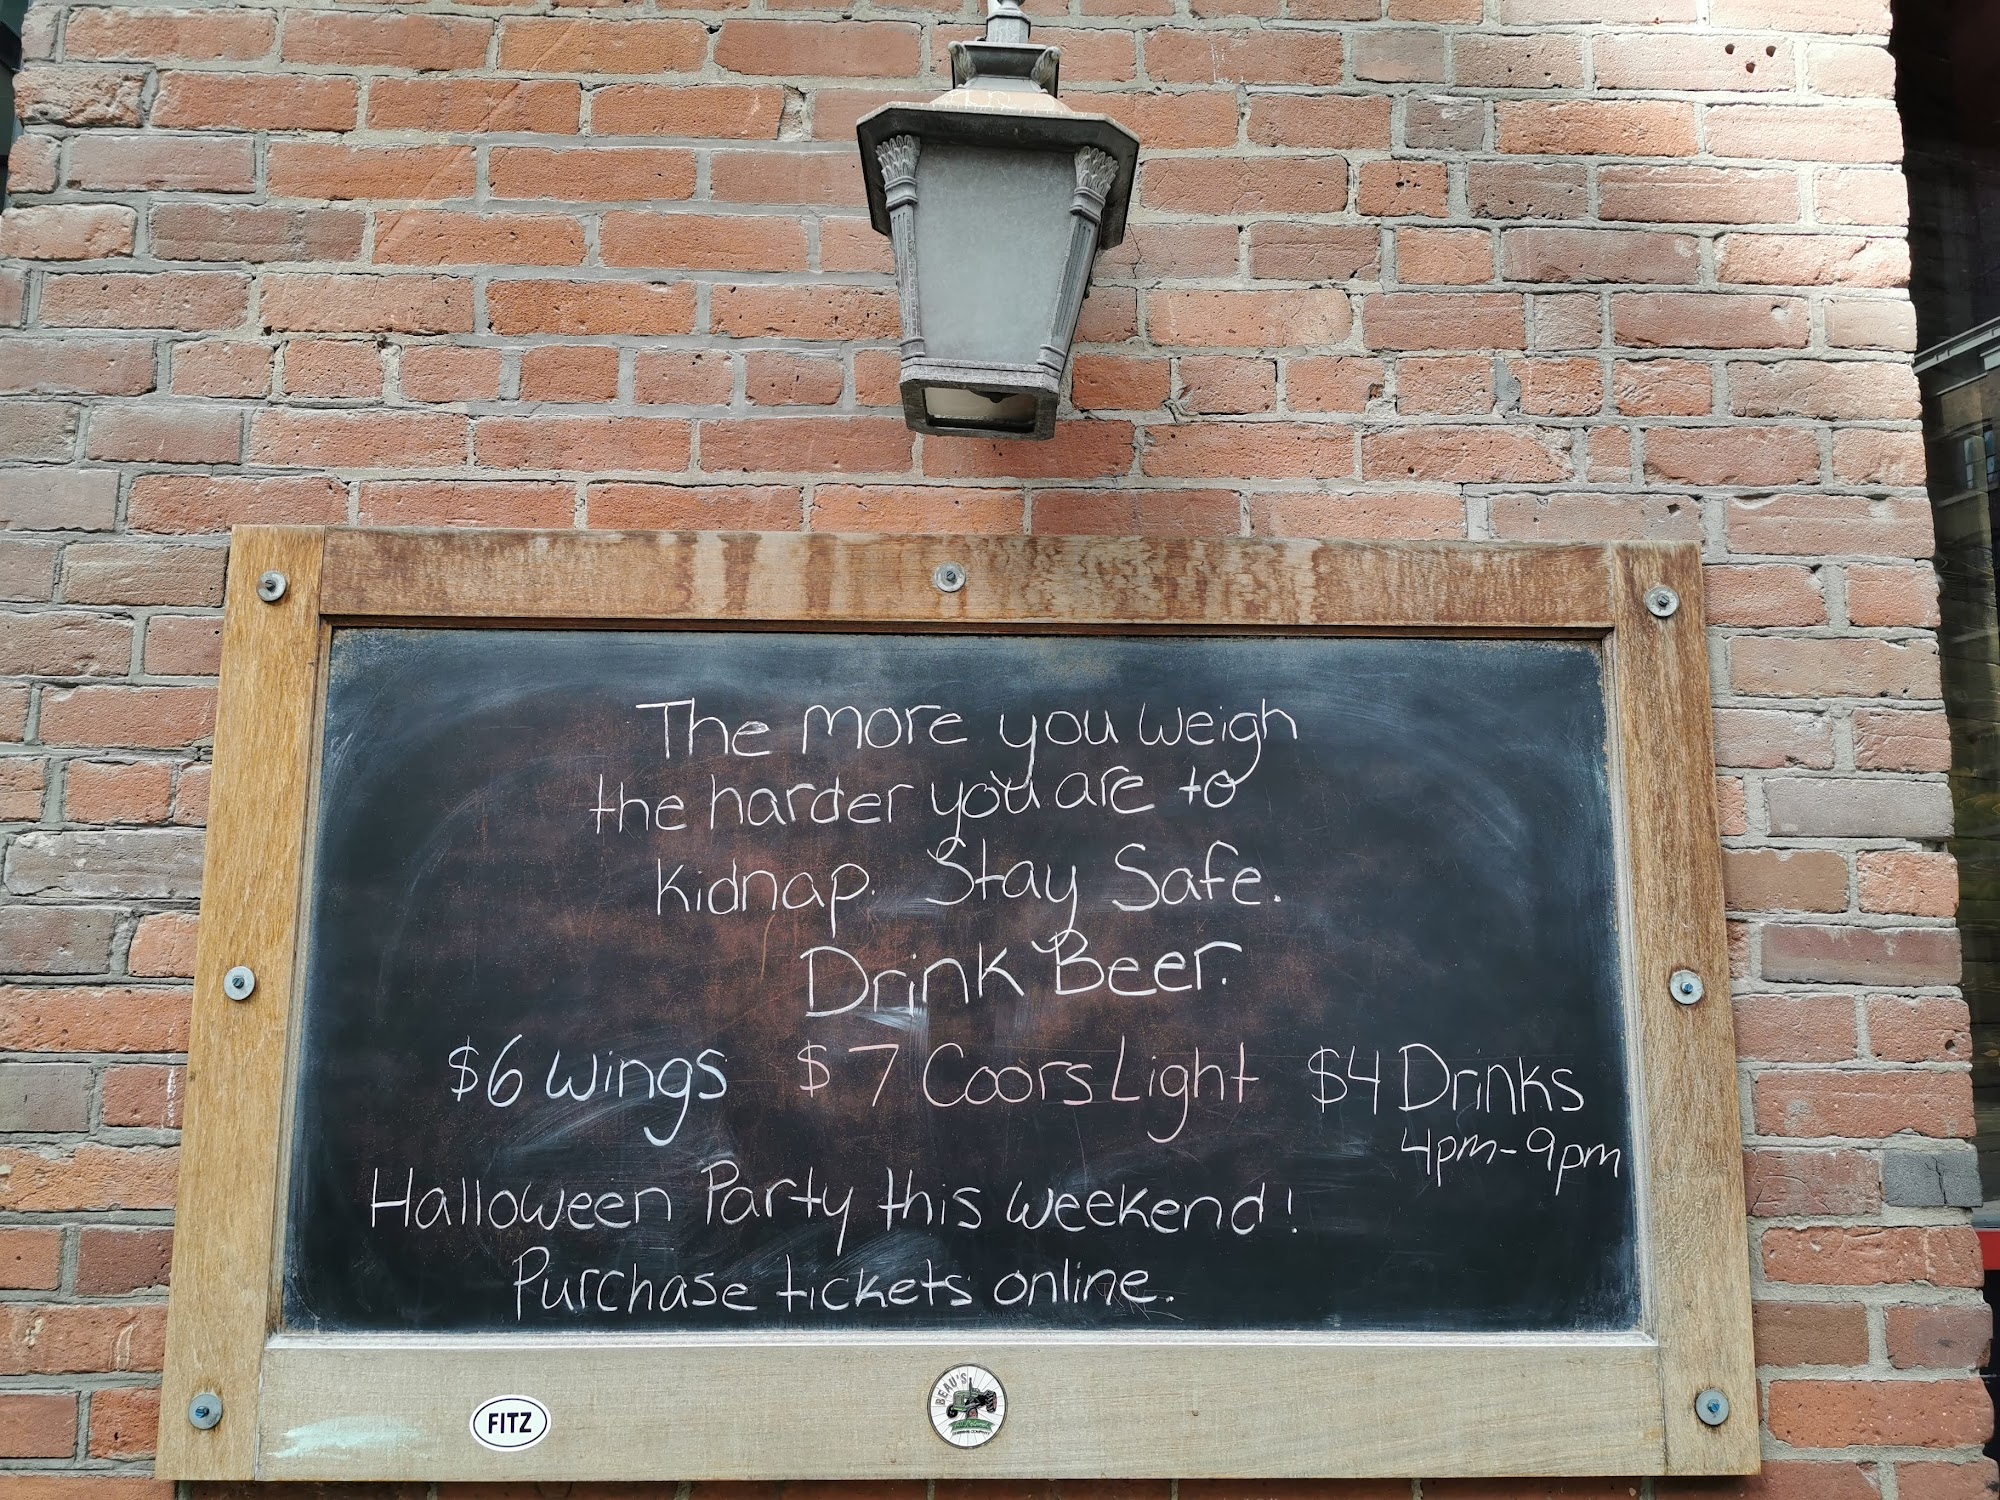 The more you weigh
the harder you are to
kidnap. Stay Safe.
Drink Beer.
$6 wings $7 Coors Light $4 Drinks
4pm-9pm
Halloween Party this weekend!
Purchase tickets online.
FITZ
BEAU'S